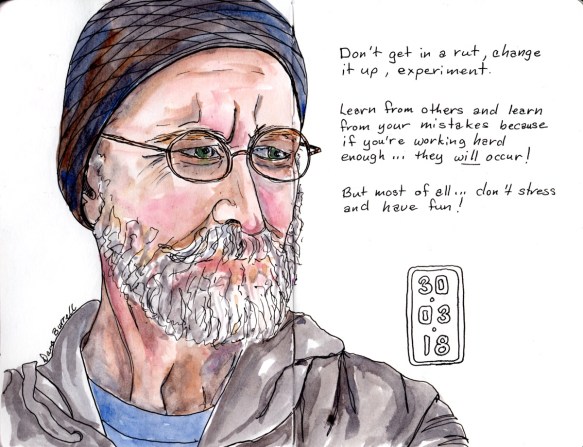 Don't get in a rut, change
it up, experiment.
Learn from others and learn
from your mistakes because
if you're working hard
enough... they will occur!
But most of all... don't stress
and have fun!
30
.
03
.
18